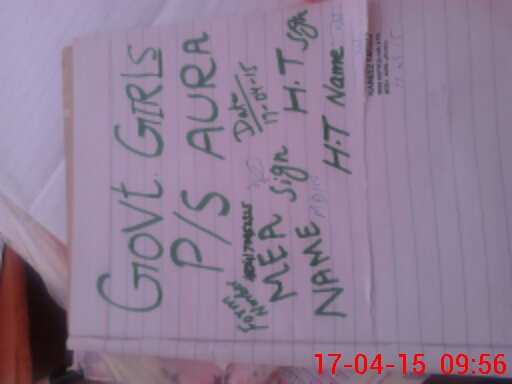 GOVt. GIRLS
P/S AURA
Date
17-04-15
Form
Number
MEA Sign H.T Sign
NAME H.T Name
17-04-15 09:56